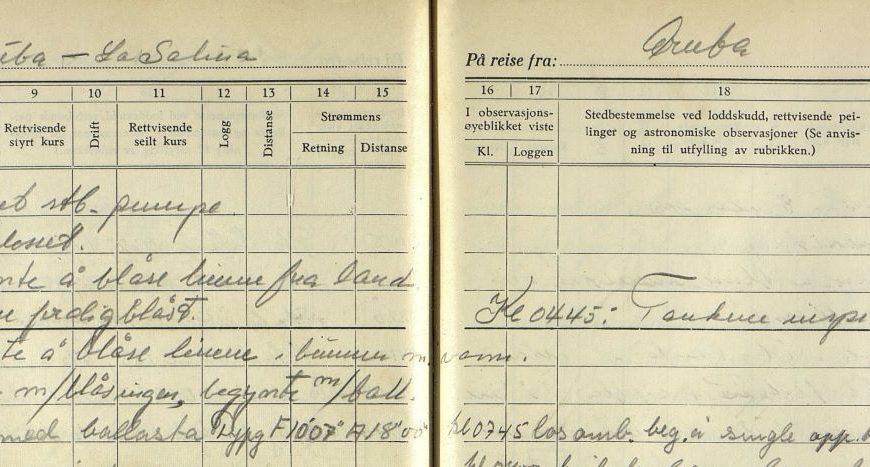 uba – La Salina
9 10 11 12 13 14 15
Rettvisende styrt kurs
Drift
Rettvisende seilt kurs
Logg
Distanse
Strømmens
Retning Distanse
et stb. pumpe
losset.
nte å blåse linene fra land
ferdigblåst.
te å blåse linene i bunnen m. vann.
m/blåsingen, begynte m/ball.
med ballasta Dypg F 10'07" A 18'00"
På reise fra: Aruba
16 17 18
I observasjons-
øyeblikket viste
Kl. Loggen
Stedbestemmelse ved loddskudd, rettvisende pei-
linger og astronomiske observasjoner (Se anvis-
ning til utfylling av rubrikken.)
Kl 0445: Tankene insp
kl 0745 los omb. beg. å single opp.